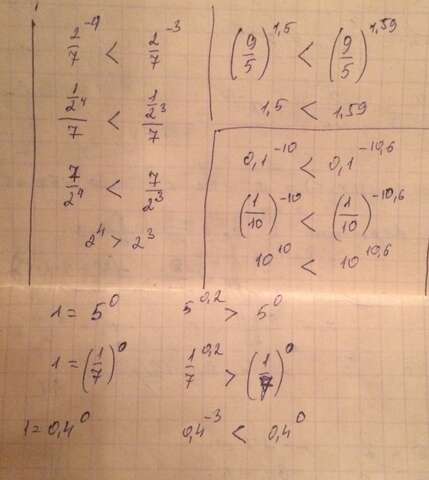 2^-4/7 < 2^-3/7
(1/2^4)/7 < (1/2^3)/7
7/2^4 < 7/2^3
2^4 > 2^3
(9/5)^1,5 < (9/5)^1,59
1,5 < 1,59
0,1^-10 < 0,1^-10,6
(1/10)^-10 < (1/10)^-10,6
10^10 < 10^10,6
1 = 5^0 5^0,2 > 5^0
1 = (1/7)^0 1/7^0,2 > (1/7)^0
1 = 0,4^0 0,4^-3 < 0,4^0